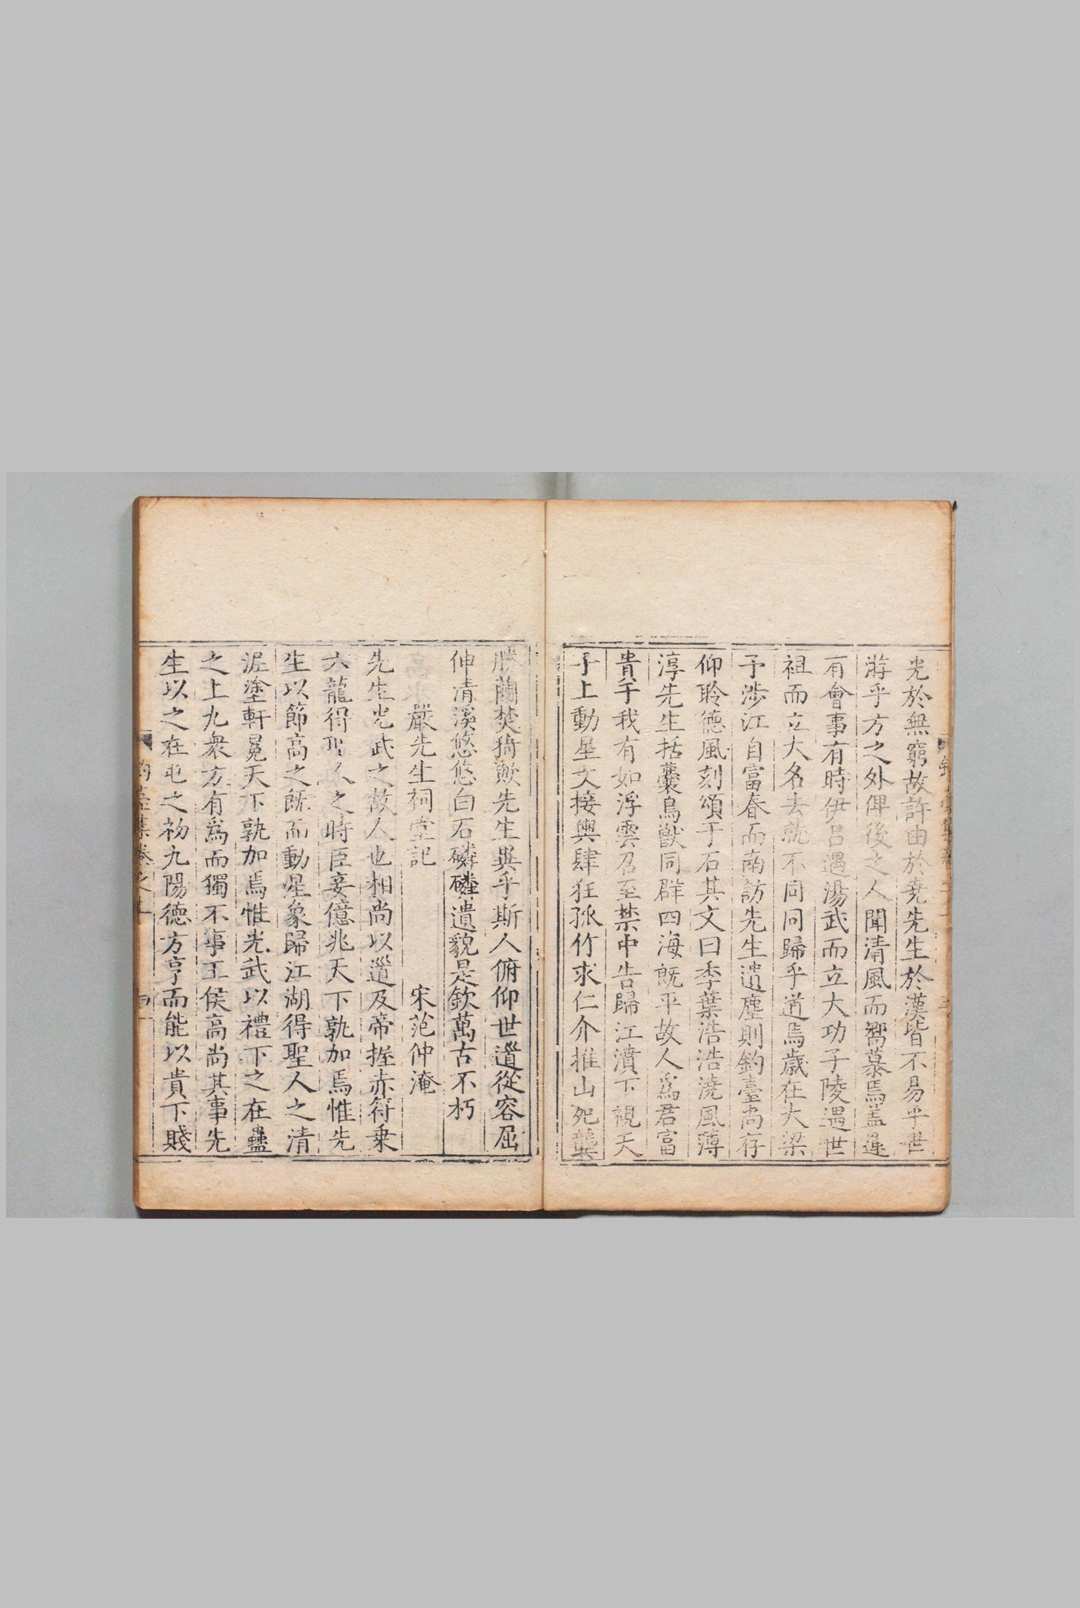 光於無窮故許由於堯先生於漢皆不易乎世
游乎方之外俾後之人聞清風而嚮慕焉蓋運
有會事有時伊呂遇湯武而立大功子陵遇世
祖而立大名去就不同同歸乎道焉歲在大梁
予涉江自富春而南訪先生遺塵則釣臺尚存
仰聆德風刻頌于石其文曰季葉浩浩澆風薄
淳先生括囊鳥獸同群四海既平故人為君富
貴于我有如浮雲召至禁中告歸江濆下視天
子上動星文接輿肆狂孤竹求仁介推山死龔
勝蘭焚猗歟先生異乎斯人俯仰世道從容屈
伸清溪悠悠白石磷磷遺貌是欽萬古不朽
嚴先生祠堂記 宋范仲淹
先生光武之故人也相尚以道及帝握赤符乗
六龍得聖人之時臣妾億兆天下孰加焉惟先
生以節高之既而動星象歸江湖得聖人之清
泥塗軒冕天下孰加焉惟光武以禮下之在蠱
之上九衆方有爲而獨不事王侯高尚其事先
生以之在屯之初九陽德方亨而能以貴下賤
釣臺集卷之